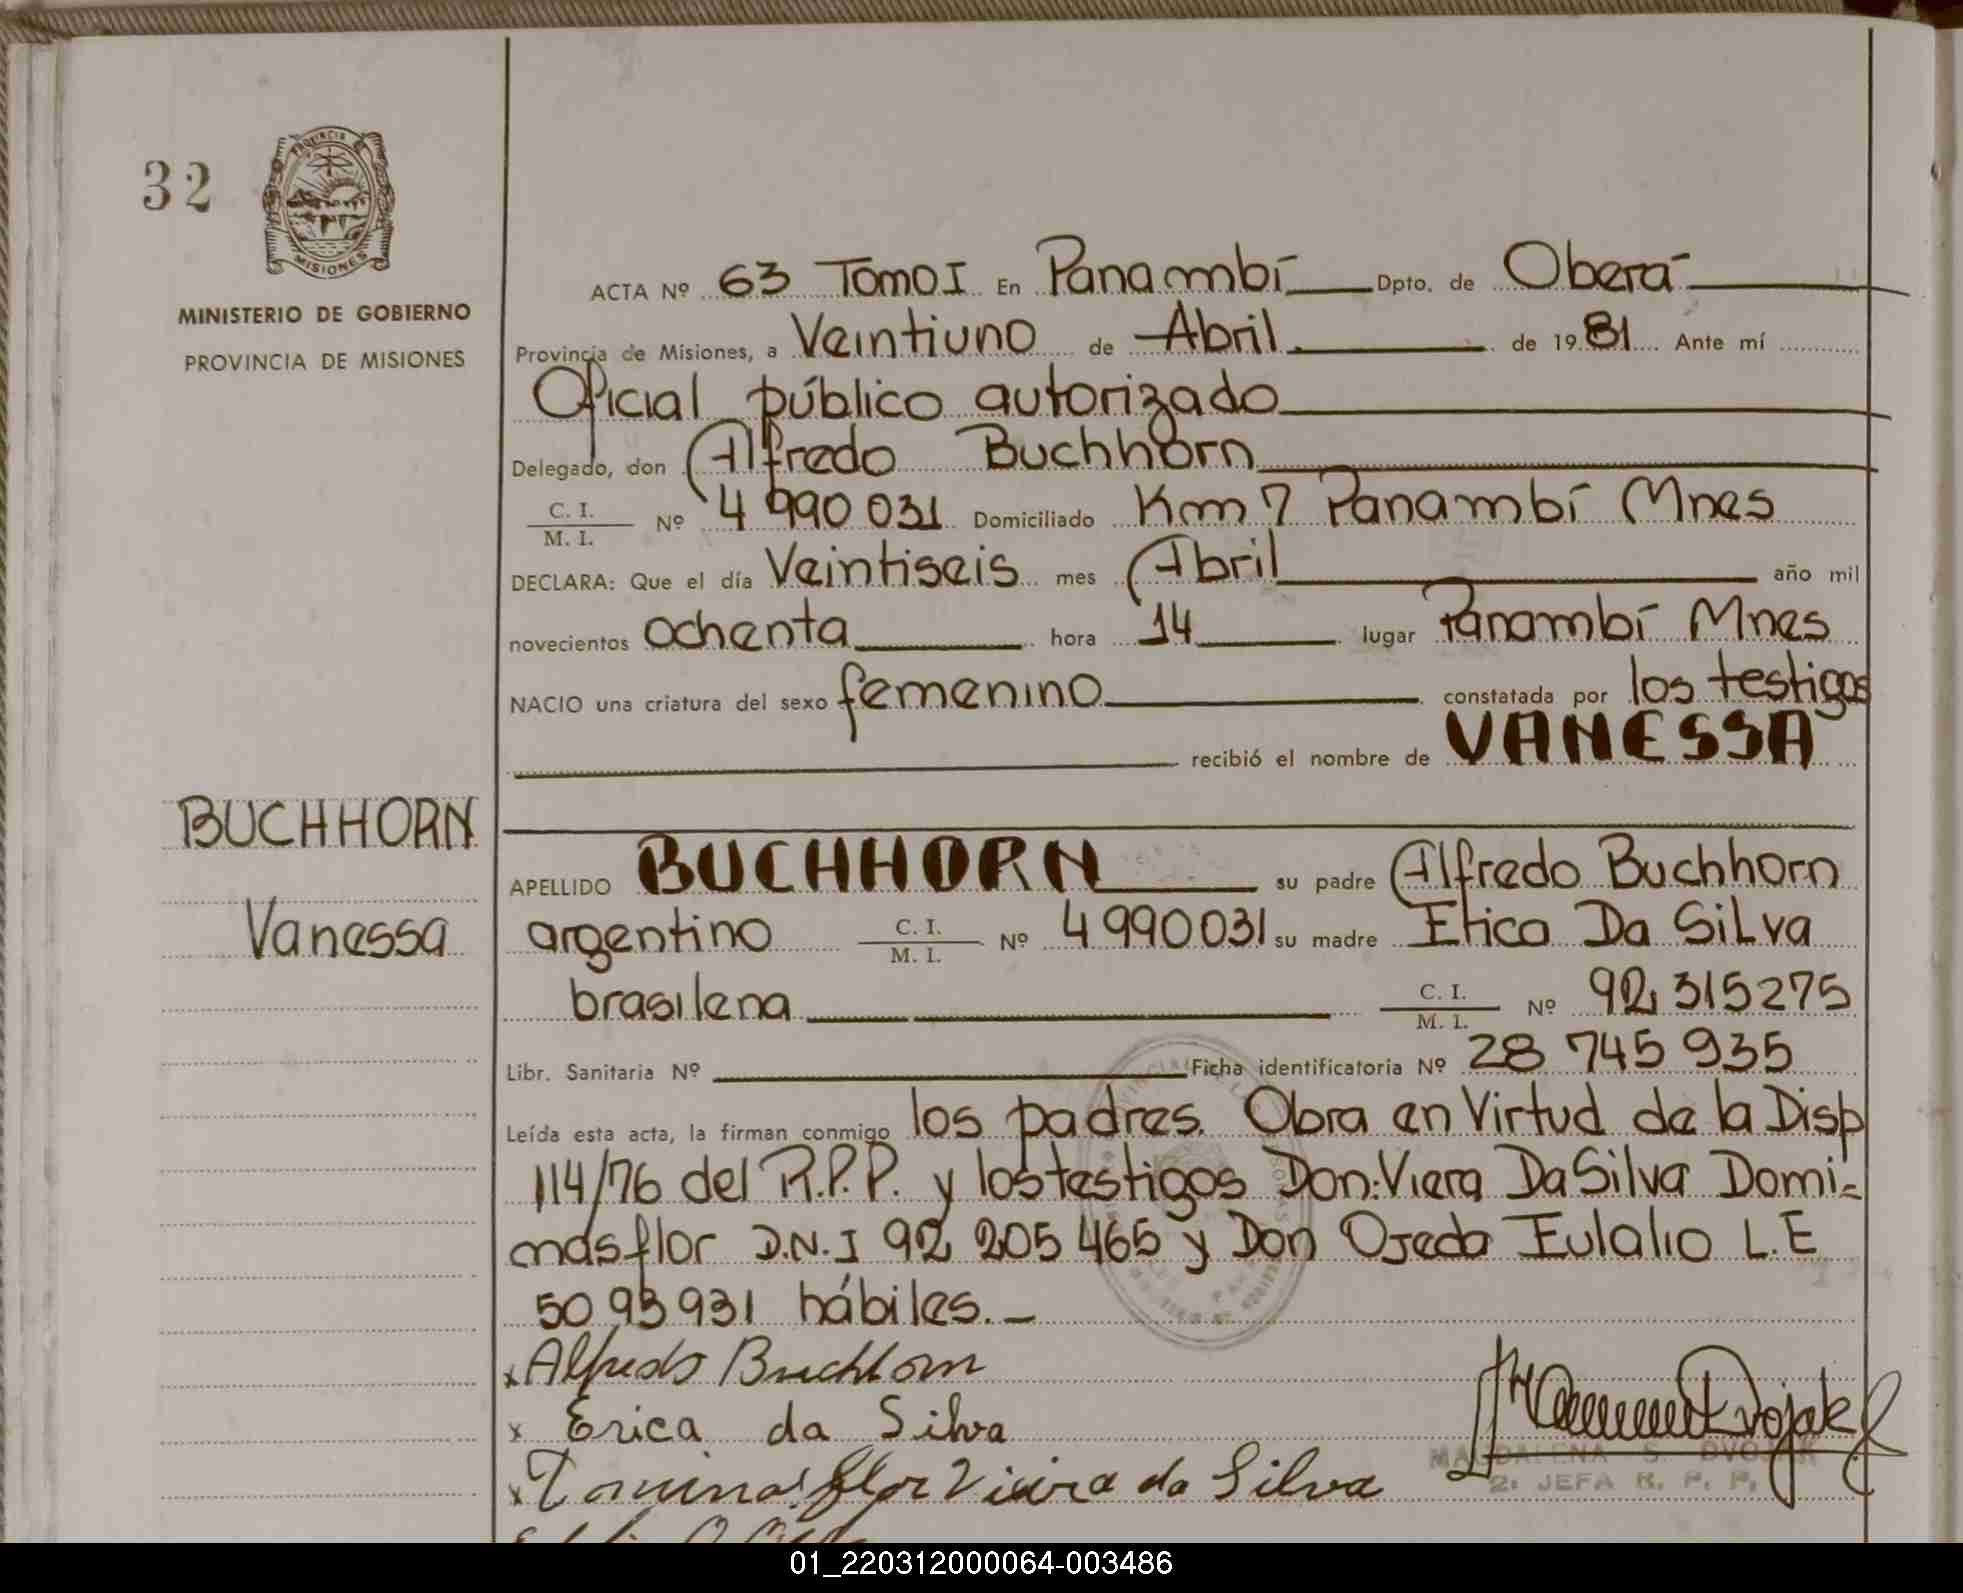 32
PROVINCIA
MISIONES
MINISTERIO DE GOBIERNO
PROVINCIA DE MISIONES
ACTA Nº 63 Tomo I En Panambí Dpto. de Oberá
Provincia de Misiones, a Veintiuno de Abril de 1981 Ante mí
Oficial público autorizado
Delegado, don Alfredo Buchhorn
C. I.
M. I.
Nº 4 990 031 Domiciliado Km 7 Panambí Mnes
DECLARA: Que el día Veintiseis mes Abril año mil
novecientos ochenta hora 14 lugar Panambí Mnes
NACIO una criatura del sexo femenino constatada por los testigos
recibió el nombre de VANESSA
BUCHHORN
APELLIDO BUCHHORN su padre Alfredo Buchhorn
Vanessa
argentino C. I.
M. I.
Nº 4 990031 su madre Erica Da Silva
brasilena C. I.
M. I.
Nº 92 315275
Libr. Sanitaria Nº Ficha identificatoria Nº 28 745 935
Leída esta acta, la firman conmigo los padres. Obra en Virtud de la Disp
114/76 del R.P.P. y los testigos Don: Viera Da Silva Domi=
nasflor D.N.I 92 205 465 y Don Ojeda Eulalio L.E
50 93 931 hábiles.—
x Alfredo Buchhorn
x Erica da Silva
x Dominasflor Vieira da Silva
MAGDALENA S. DVOJAK
2: JEFA R. P. P.
01_220312000064-003486